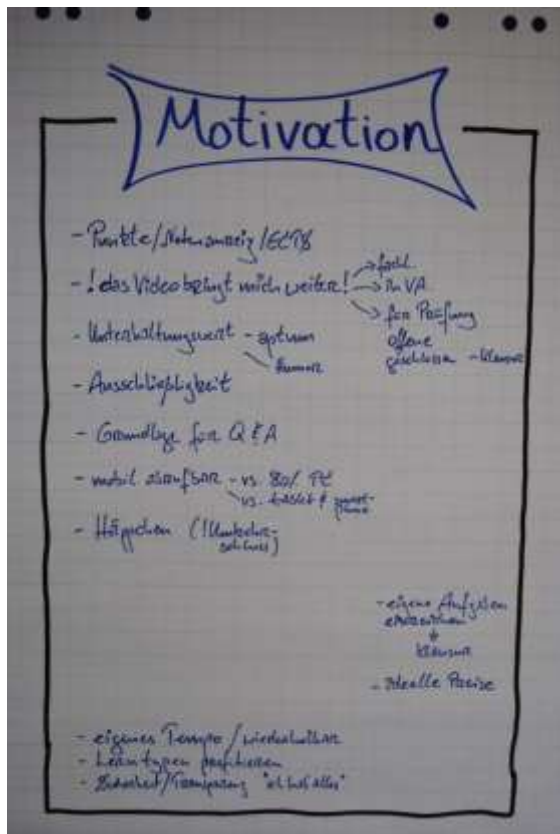 Motivation
- Punkte/Notenanreiz/ECTS
- ! das Video bringt mich weiter! → fachl.
→ in VA
→ für Prüfung
offene
geschlossene - Klausur
- Unterhaltungswert - optum
Humor
- Ausschließlichkeit
- Grundlage für Q & A
- mobil abrufbar - vs. 80% PC
vs. tablet & smart-
phone
- Häppchen (! Umkehr-
schluss)
- eigene Aufgaben
einreichen
↓
Klausur
- ideelle Preise
- eigenes Tempo/wiederholbar
- Lerntypen profitieren
- Sicherheit/Transparenz "ich hab alles"